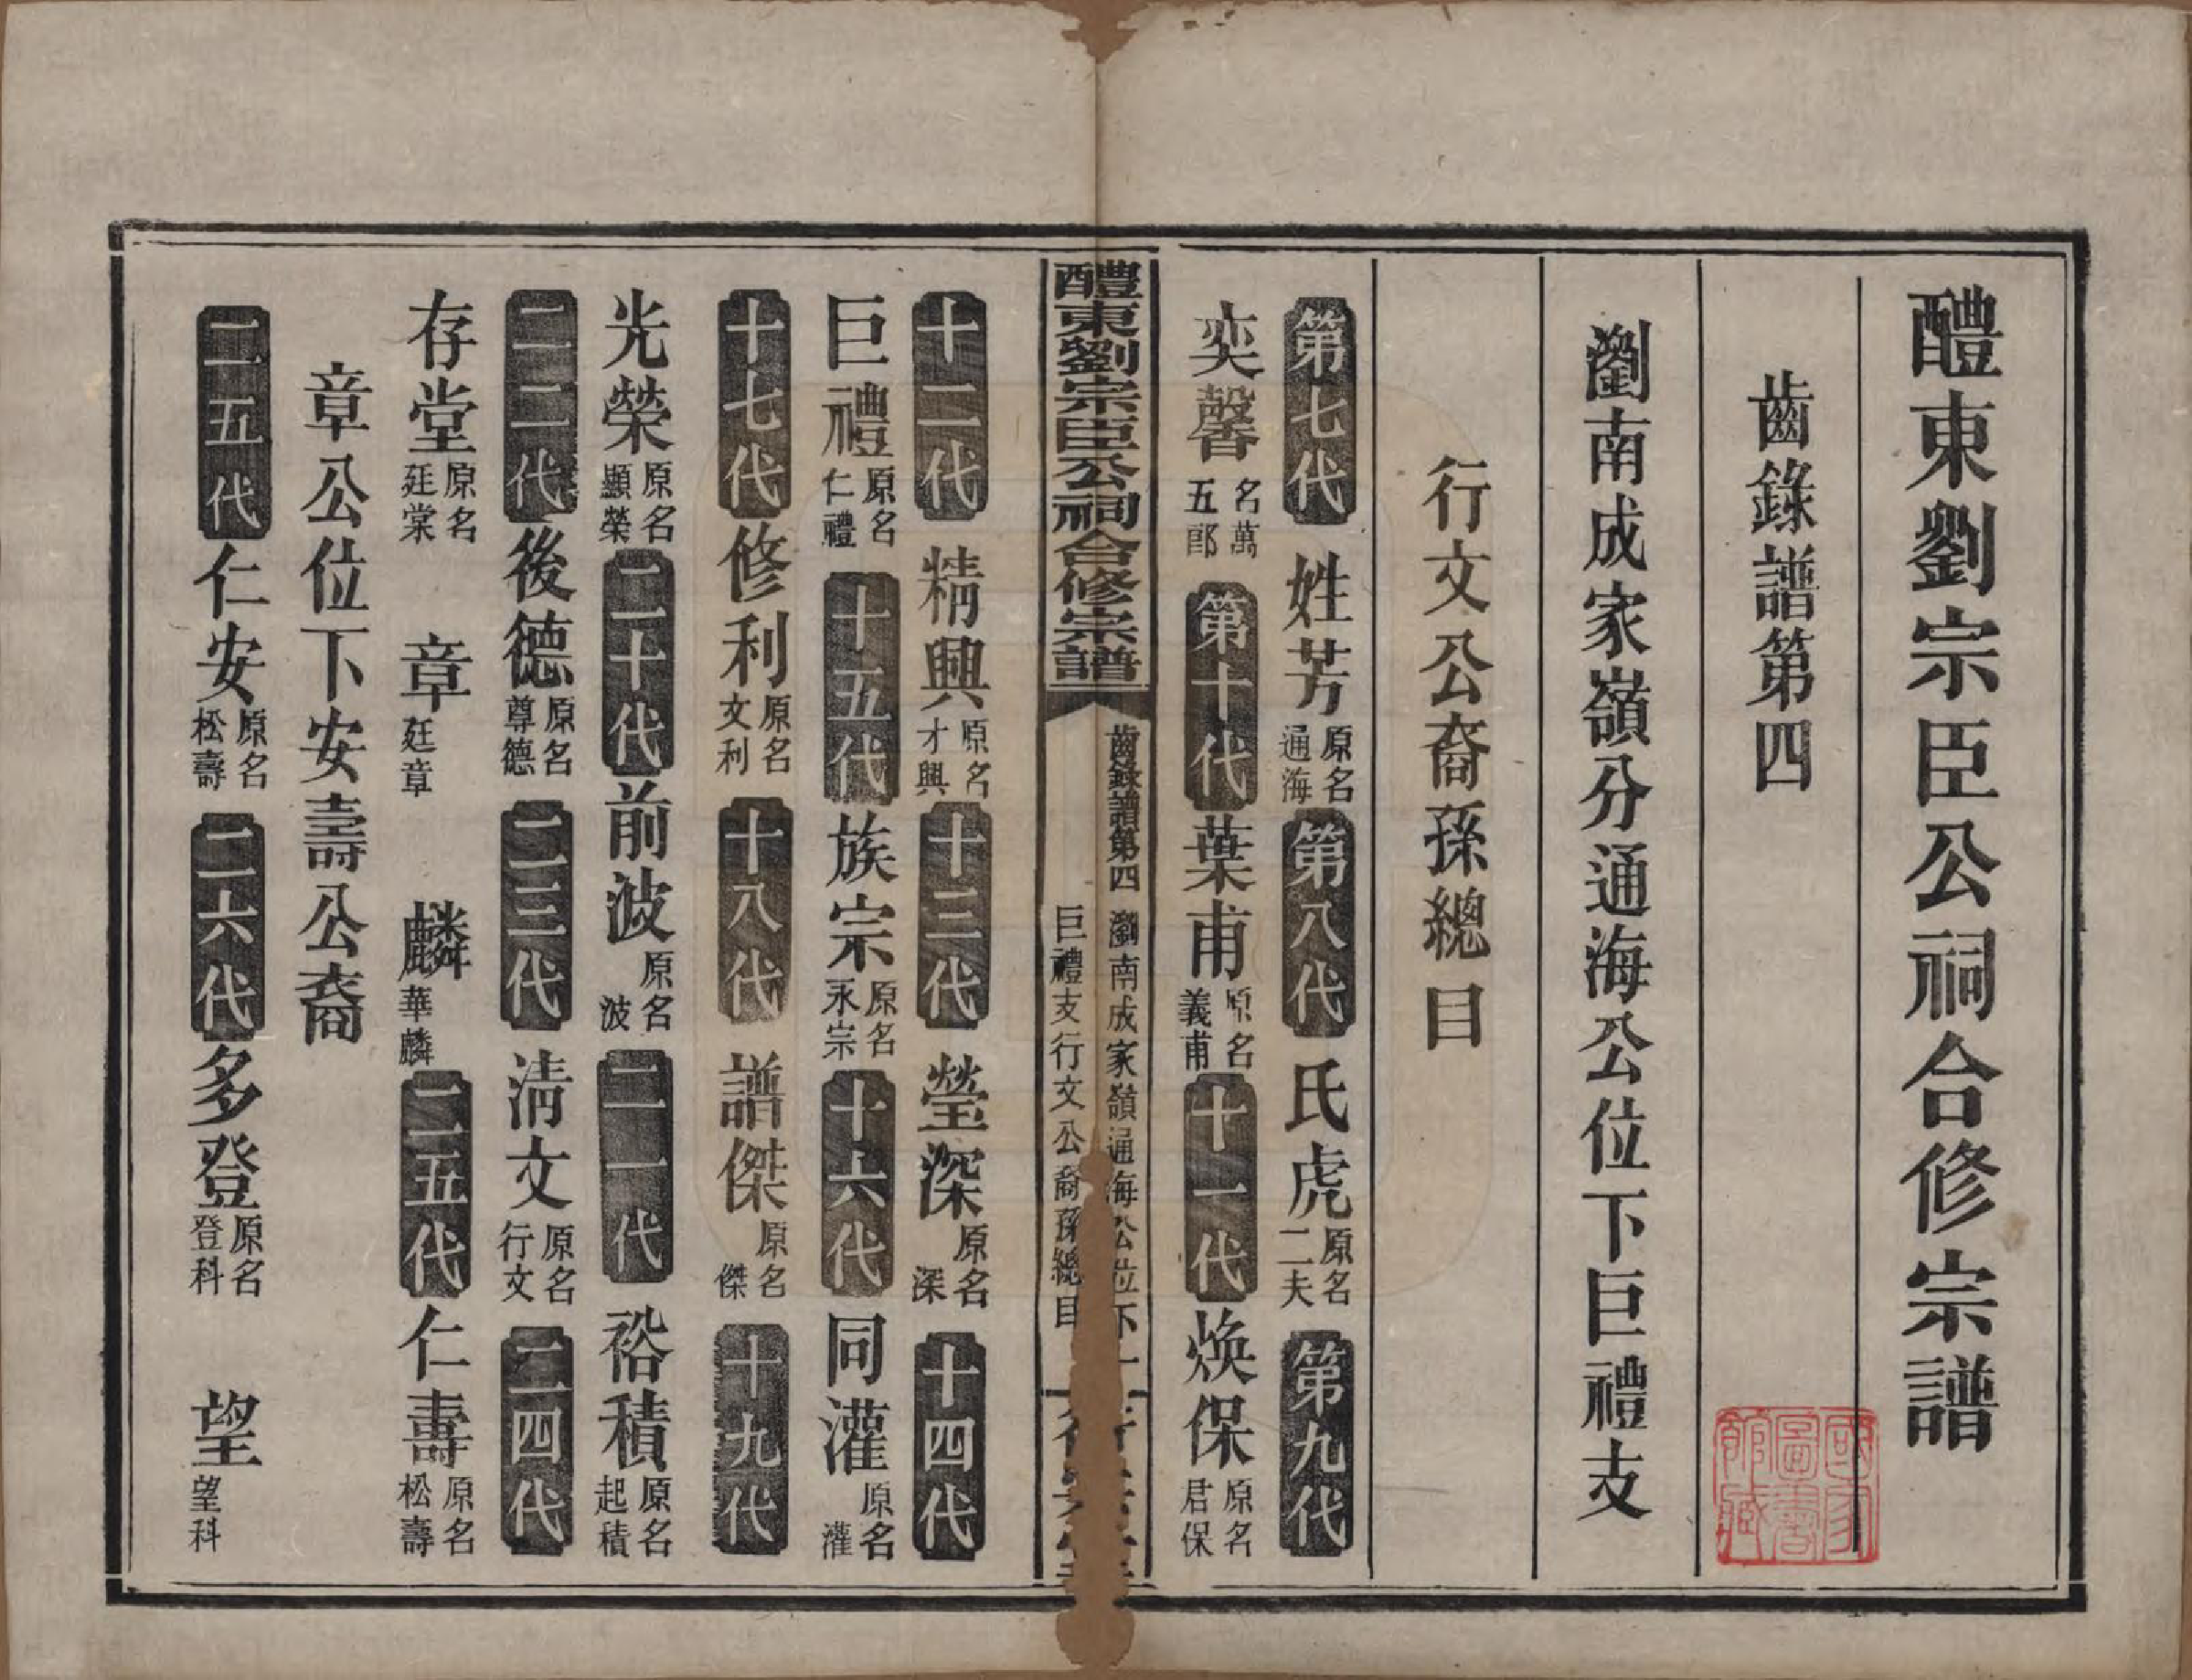 醴東劉宗臣公祠合修宗譜
齒錄譜第四
瀏南成家嶺分通海公位下巨禮支
行文公裔孫總目
第七代 姓芳 原名通海 第八代 氏虎 原名二夫 第九代
奕馨 名萬五郎 第十代 葉甫 原名義甫 十一代 煥保 原名君保
醴東劉宗臣公祠合修宗譜 齒錄譜第四 瀏南成家嶺通海公位下
巨禮支行文公裔孫總目
十二代 精興 原名才興 十三代 瑩深 原名深 十四代
巨禮 原名仁禮 十五代 族宗 原名永宗 十六代 同灌 原名灌
十七代 修利 原名文利 十八代 譜傑 原名傑 十九代
光榮 原名顯榮 二十代 前波 原名波 二一代 裕積 原名起積
二二代 後德 原名尊德 二三代 清文 原名行文 二四代
存堂 原名廷棠 章 廷章 麟 華麟 二五代 仁壽 原名松壽
章公位下安壽公裔
二五代 仁安 原名松壽 二六代 多登 原名登科 望 望科
國家圖書館藏